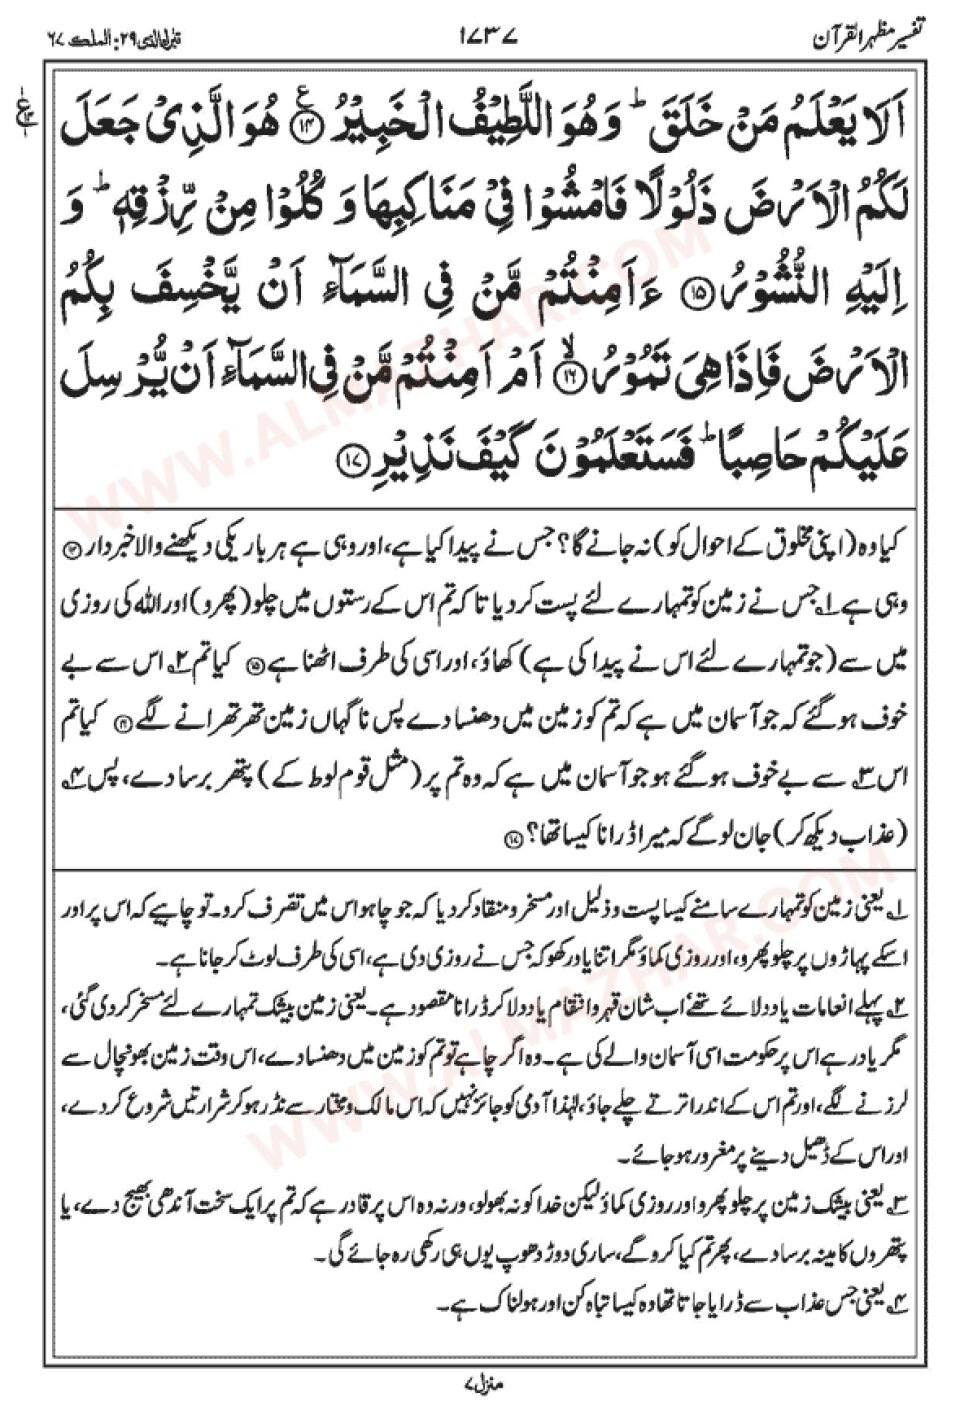 تفسیر مظہر القرآن
۱۷۳۷
تبٰرک الذی ۲۹: الملک ۶۷
اَلَا یَعْلَمُ مَنْ خَلَقَ ؕ وَ هُوَ اللَّطِیْفُ الْخَبِیْرُ ﴿۱۴﴾ هُوَ الَّذِیْ جَعَلَ
لَكُمُ الْاَرْضَ ذَلُوْلًا فَامْشُوْا فِیْ مَنَاكِبِهَا وَ كُلُوْا مِنْ رِّزْقِهٖ ؕ وَ
اِلَیْهِ النُّشُوْرُ ﴿۱۵﴾ ءَاَمِنْتُمْ مَّنْ فِی السَّمَآءِ اَنْ یَّخْسِفَ بِكُمُ
الْاَرْضَ فَاِذَا هِیَ تَمُوْرُ ﴿۱۶﴾ۙ اَمْ اَمِنْتُمْ مَّنْ فِی السَّمَآءِ اَنْ یُّرْسِلَ
عَلَیْكُمْ حَاصِبًا ؕ فَسَتَعْلَمُوْنَ كَیْفَ نَذِیْرِ ﴿۱۷﴾
کیا وہ (اپنی مخلوق کے احوال کو) نہ جانے گا؟ جس نے پیدا کیا ہے، اور وہی ہے ہر باریکی دیکھنے والا خبردار ⑭
وہی ہے ۱؎ جس نے زمین کو تمہارے لئے پست کر دیا تاکہ تم اس کے رستوں میں چلو (پھرو) اور اللہ کی روزی
میں سے (جو تمہارے لئے اس نے پیدا کی ہے) کھاؤ، اور اسی کی طرف اٹھنا ہے ⑮ کیا تم ۲؎ اس سے بے
خوف ہو گئے کہ جو آسمان میں ہے کہ تم کو زمین میں دھنسا دے پس ناگہاں زمین تھرتھرانے لگے ⑯ کیا تم
اس ۳؎ سے بے خوف ہو گئے ہو جو آسمان میں ہے کہ وہ تم پر (مثل قوم لوط کے) پتھر برسا دے، پس ۴؎
(عذاب دیکھ کر) جان لو گے کہ میرا ڈرانا کیسا تھا؟ ⑰
۱؎ یعنی زمین کو تمہارے سامنے کیسا پست و ذلیل اور مسخر و منقاد کر دیا کہ جو چاہو اس میں تصرف کرو۔ تو چاہیے کہ اس پر اور
اسکے پہاڑوں پر چلو پھرو، اور روزی کماؤ مگر اتنا یاد رکھو کہ جس نے روزی دی ہے، اسی کی طرف لوٹ کر جانا ہے۔
۲؎ پہلے انعامات یاد دلائے تھے اب شان قہر و انتقام یاد دلا کر ڈرانا مقصود ہے۔ یعنی زمین بیشک تمہارے لئے مسخر کر دی گئی،
مگر یاد رہے اس پر حکومت اسی آسمان والے کی ہے۔ وہ اگر چاہے تو تم کو زمین میں دھنسا دے، اس وقت زمین بھونچال سے
لرزنے لگے، اور تم اس کے اندر اترتے چلے جاؤ، لہٰذا آدمی کو جائز نہیں کہ اس مالک و مختار سے نڈر ہو کر شرارتیں شروع کر دے،
اور اس کے ڈھیل دینے پر مغرور ہو جائے۔
۳؎ یعنی بیشک زمین پر چلو پھرو اور روزی کماؤ لیکن خدا کو نہ بھولو، ورنہ وہ اس پر قادر ہے کہ تم پر ایک سخت آندھی بھیج دے، یا
پتھروں کا مینہ برسا دے، پھر تم کیا کرو گے، ساری دوڑ دھوپ یوں ہی رکھی رہ جائے گی۔
۴؎ یعنی جس عذاب سے ڈرایا جاتا تھا وہ کیسا تباہ کن اور ہولناک ہے۔
منزل ۷
WWW.ALMAZHAR.COM
WWW.ALMAZHAR.COM